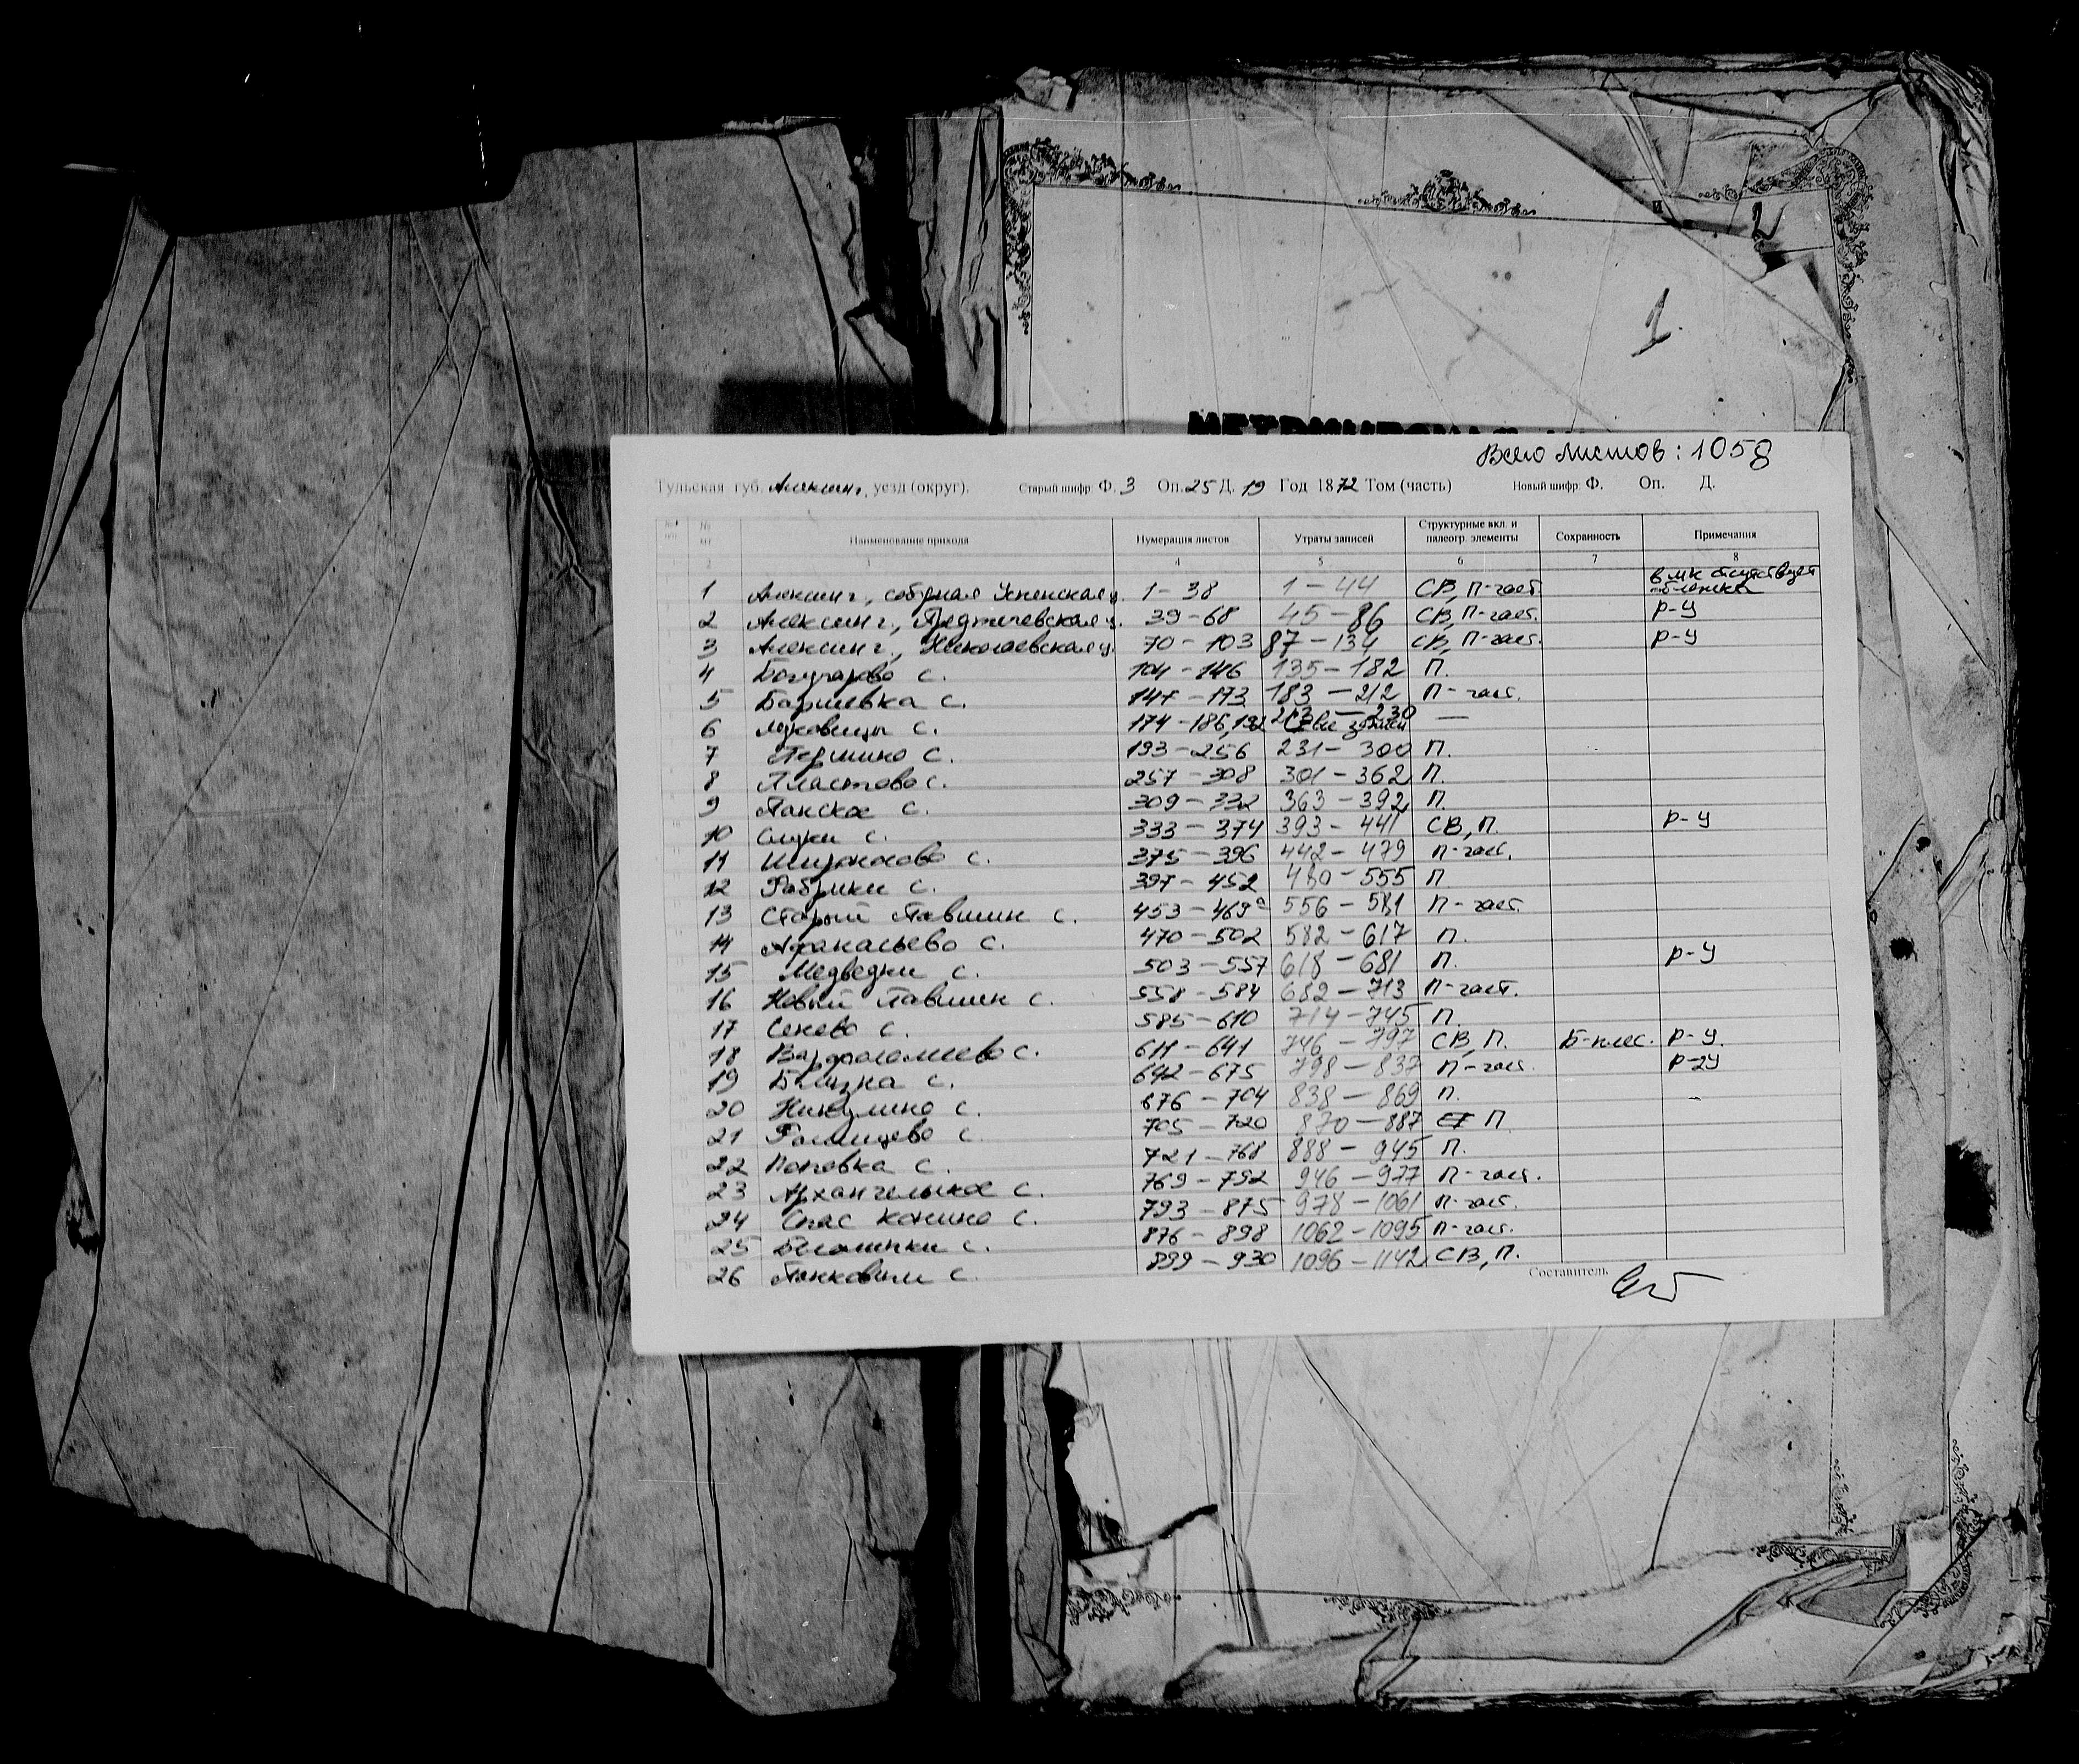 2
1
МЕТРИЧЕСКАЯ
Всего листов: 1058
Тульская губ. Алексин г. уезд (округ). Старый шифр: Ф. 3 Оп. 25 Д. 19 Год 1872 Том (часть) Новый шифр: Ф. Оп. Д.
Наименование прихода Нумерация листов Утраты записей Структурные вкл. и палеогр. элементы Сохранность Примечания
2 3 4 5 6 7 8
1 Алексин г., соборная Успенская ц. 1-38 1-44 СВ, П-част. в МК отсутствует обложка
2 Алексин г., Предтечевская ц. 39-68 45-86 СВ, П-част. Р-У
3 Алексин г., Николаевская ц. 70-103 87-134 СВ, П-част. Р-У
4 Богучарово с. 104-146 135-182 П.
5 Варшевка с. 147-173 183-212 П-част.
6 Луковицы с. 174-186, 192 213-230 —
7 Першино с. 193-256 231-300 П.
8 Пластово с. 257-308 301-362 П.
9 Панское с. 309-332 363-392 П.
10 Слузки с. 333-374 393-441 СВ, П. Р-У
11 Широносово с. 375-396 442-479 П-част.
12 Фабрики с. 397-452 480-555 П
13 Старый Павшин с. 453-469а 556-581 П-част.
14 Афанасьево с. 470-502 582-617 П.
15 Медведки с. 503-557 618-681 П. Р-У
16 Новый Павшин с. 558-584 682-713 П-част.
17 Сенево с. 585-610 714-745 П.
18 Варфоломеево с. 611-641 746-797 СВ, П. Б-плес. Р-У.
19 Близна с. 642-675 798-837 П-част. Р-2У
20 Никулино с. 676-704 838-869 П.
21 Фомищево с. 705-720 870-887 П
22 Поповка с. 721-768 888-945 П.
23 Архангельское с. 769-792 946-977 П-част.
24 Спас Конино с. 793-875 978-1061 П-част.
25 Беломенки с. 876-898 1062-1095 П-част.
26 Панковичи с. 899-930 1096-1142 СВ, П.
Составитель